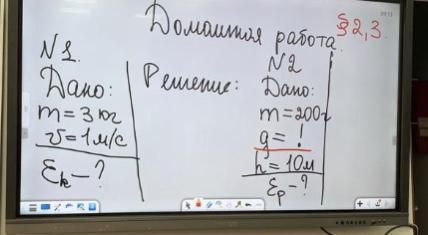 Домашняя работа. § 2, 3.
N1.
Дано:
m = 3 кг
v = 1 м/с
Ek - ?
Решение:
N2
Дано:
m = 200г
g = !
h = 10м
Ep - ?